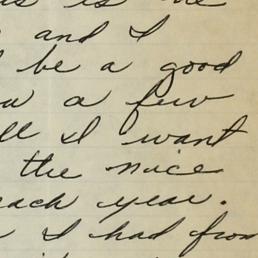 is
and I
be a good
a few
I want
the nice
each year.
I had from